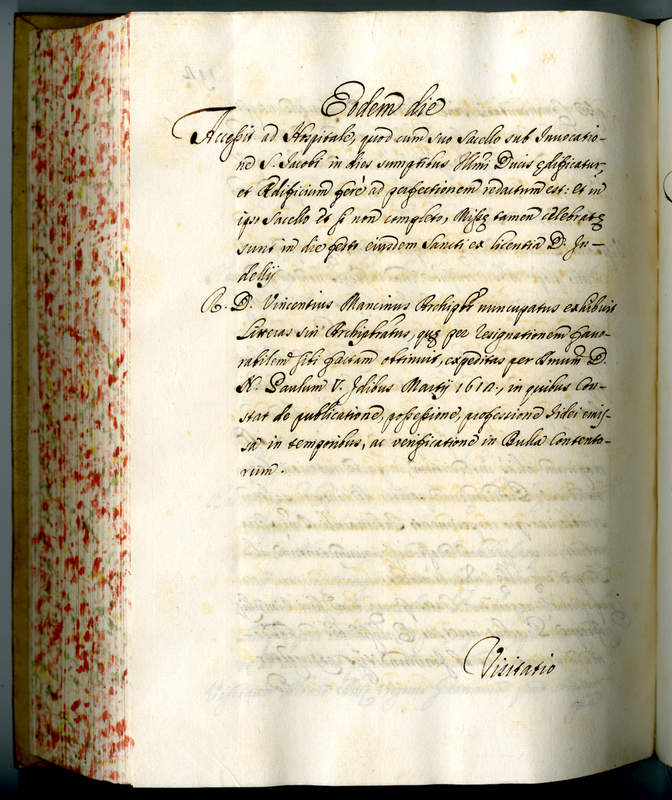 Eodem die
Accessit ad Hospitale, quod cum suo Sacello sub Invocatio-
ne S. Jacobi in dies sumptibus Illmi Ducis ędificatur,
et Ædificium ferè ad perfectionem redactum est: Et in
ipso Sacello et si non completo, Missę tamen celebratę
sunt in die festo eiusdem Sancti ex licentia D. Ju-
delij
R. D. Vincentius Mancinus Archipbr nuncupatus exhibuit
Litteras sui Archipbratus, quas per resignationem favo-
rabilem sibi factam obtinuit, expeditas per Smum D.
N. Paulum V. Idibus Martij 1610, in quibus Con-
stat de publicatione, possessione, professione fidei emis-
sa in temporibus, ac verificatione in Bulla contento-
rum.
Visitatio